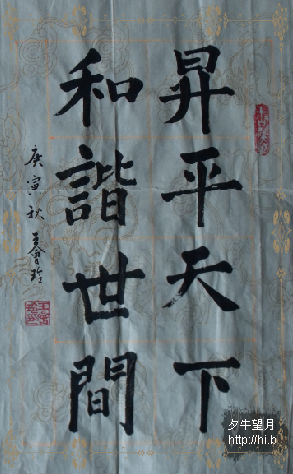 昇平天下
和諧世間
庚寅秋
夕牛望月
http://hi.b